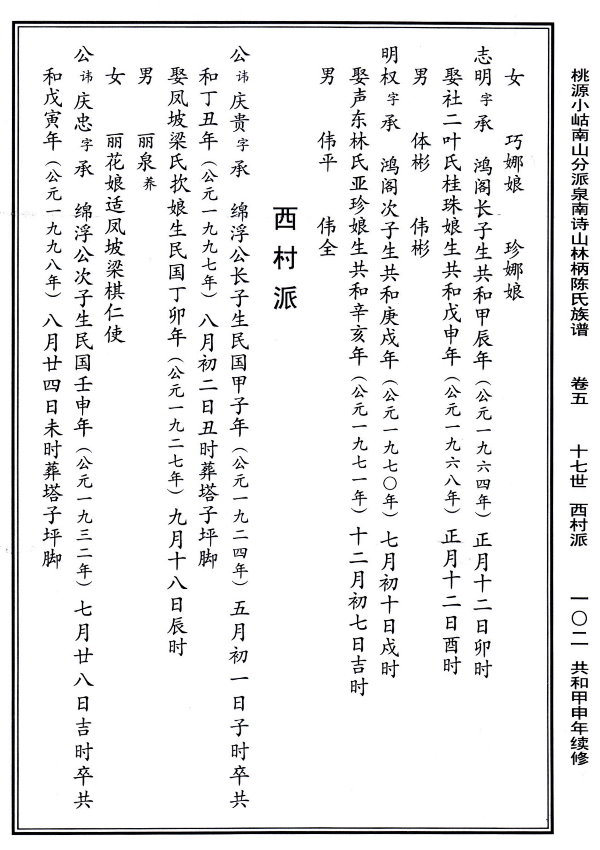 桃源小岵南山分派泉南诗山林柄陈氏族谱 卷五 十七世 西村派 一〇二 共和甲申年续修
女 巧娜娘 珍娜娘
志明字承 鸿阁长子生共和甲辰年（公元一九六四年）正月十二日卯时
娶社二叶氏桂珠娘生共和戊申年（公元一九六八年）正月十二日酉时
男 体彬 伟彬
明权字承 鸿阁次子生共和庚戌年（公元一九七〇年）七月初十日戌时
娶声东林氏亚珍娘生共和辛亥年（公元一九七一年）十二月初七日吉时
男 伟平 伟全
西村派
公讳庆贵字承 绵浮公长子生民国甲子年（公元一九二四年）五月初一日子时卒共
和丁丑年（公元一九九七年）八月初二日丑时葬塔子坪脚
娶凤坡梁氏扻娘生民国丁卯年（公元一九二七年）九月十八日辰时
男 丽泉养
女 丽花娘适凤坡梁棋仁使
公讳庆忠字承 绵浮公次子生民国壬申年（公元一九三二年）七月廿八日吉时卒共
和戊寅年（公元一九九八年）八月廿四日未时葬塔子坪脚